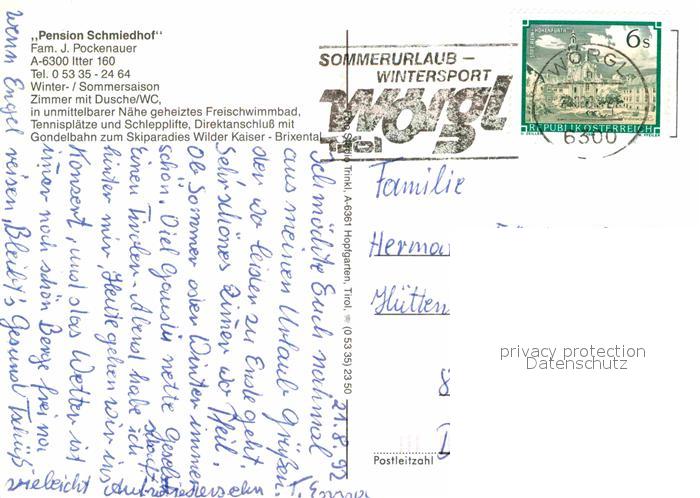 „Pension Schmiedhof"
Fam. J. Pockenauer
A-6300 Itter 160
Tel. 0 53 35 - 24 64
Winter- / Sommersaison
Zimmer mit Dusche/WC,
in unmittelbarer Nähe geheiztes Freischwimmbad,
Tennisplätze und Schlepplifte, Direktanschluß mit
Gondelbahn zum Skiparadies Wilder Kaiser - Brixental
SOMMERURLAUB –
WINTERSPORT
Wörgl
Tirol
6 S
REPUBLIK ÖSTERREICH
WÖRGL
6300
Trinkl, A-6361 Hopfgarten, Tirol, ☏ (0 53 35) 23 50
21.8.92
Ich möchte Euch nochmal
aus meinen Urlaub grüßen.
der wo leider zu Ende geht.
Sehr schönes Zimer wo
Ob Sommer oder Winter immer
schön. Viel Gaudi nette
einen Tiroler-Abend habe ich
hinter mir, Heute gehen wir ins
Konzert, und das Wetter ist
imer noch schön Berge frei na
wenn Engel reisen, Bleibt's Gesund
vieleicht Auf
Familie
Herma
Hütten
Postleitzahl
privacy protection
Datenschutz